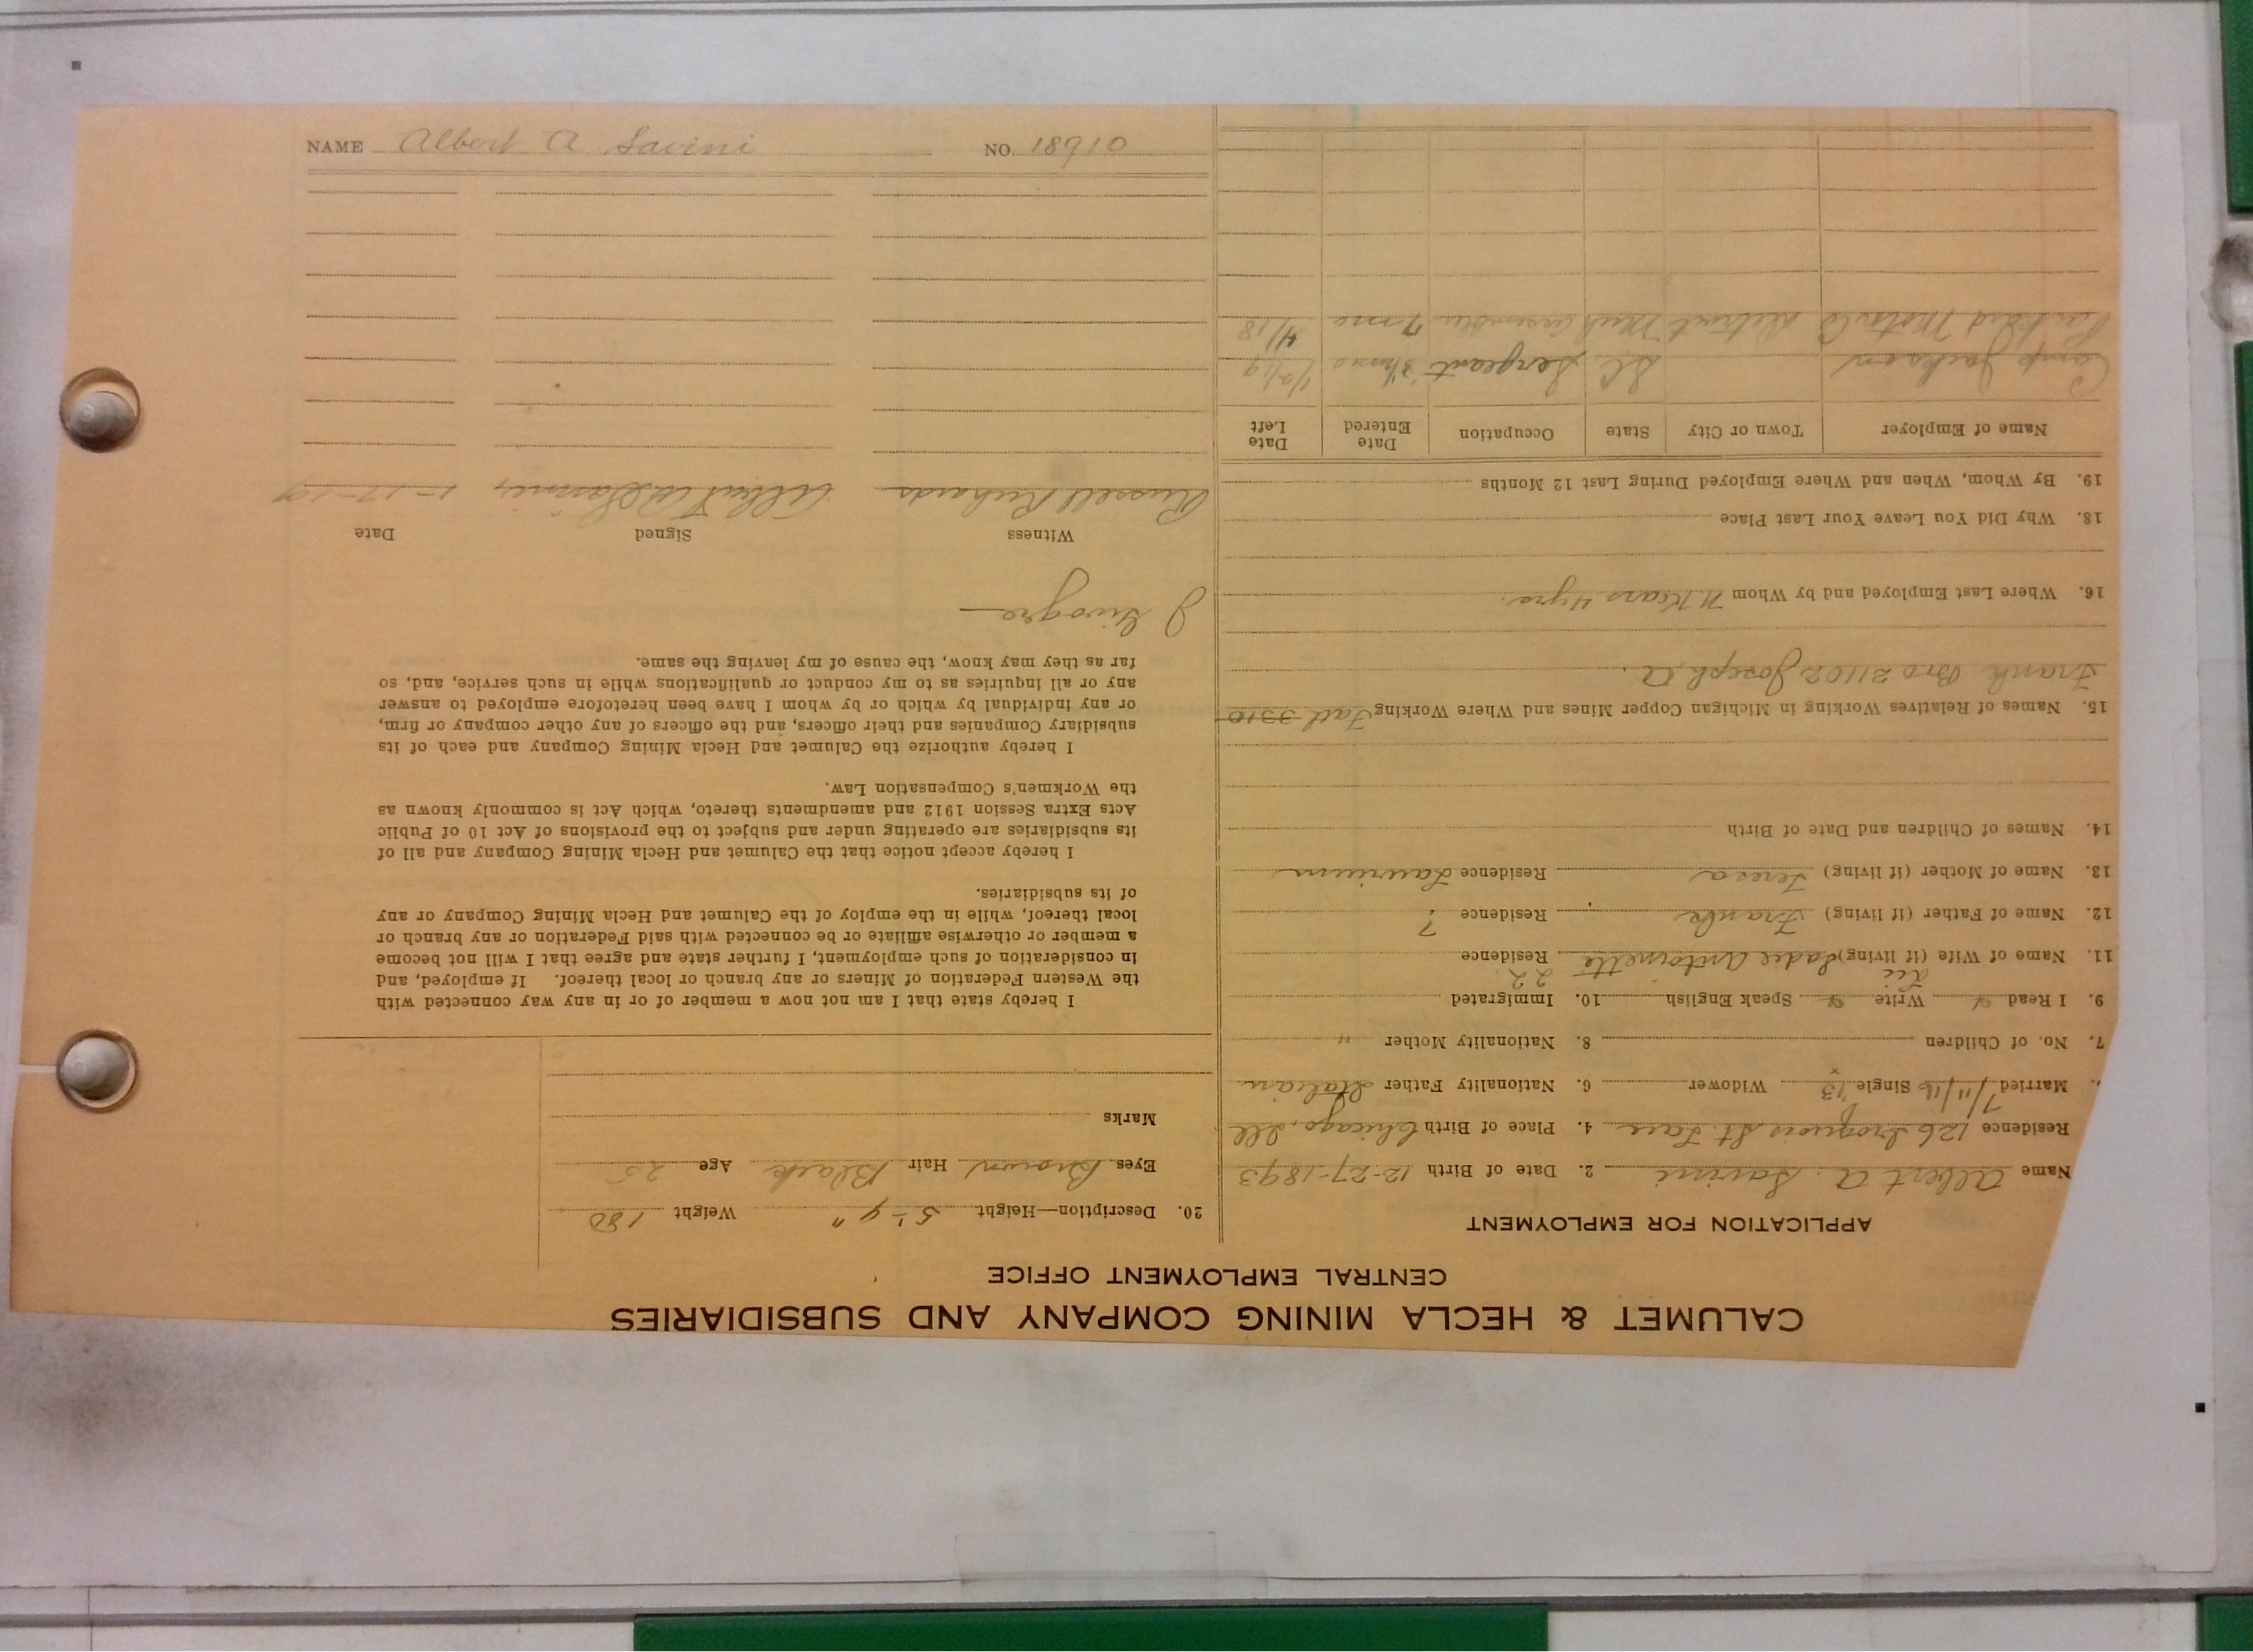 CALUMET & HECLA MINING COMPANY AND SUBSIDIARIES
CENTRAL EMPLOYMENT OFFICE
APPLICATION FOR EMPLOYMENT
Name Albert A. Savini 2. Date of Birth 12-27-1893
Residence 126 Iroquois St. Laur 4. Place of Birth Chicago, Ill
Married 7/11/16 Single Widower 6. Nationality Father Italian
7. No. of Children 8. Nationality Mother "
9. I Read Write Speak English 10. Immigrated
22
11. Name of Wife (if living) Sadie Antoinette Residence
12. Name of Father (if living) Frank Residence ?
13. Name of Mother (if living) Teresa Residence Laurium
14. Names of Children and Date of Birth
15. Names of Relatives Working in Michigan Copper Mines and Where Working Fath 3310
Frank Bro 21102 Joseph A.
16. Where Last Employed and by Whom N. Kears 4 yrs.
18. Why Did You Leave Your Last Place
19. By Whom, When and Where Employed During Last 12 Months
Name of Employer Town or City State Occupation Date Entered Date Left
Camp Jackson S.C. Sergeant 1/2/19
Packard Motor Co Detroit Mich assembler 7 mos 4/18
20. Description—Height 5'-9" Weight 180
Eyes Brown Hair Black Age 25
Marks
I hereby state that I am not now a member of or in any way connected with
the Western Federation of Miners or any branch or local thereof. If employed, and
in consideration of such employment, I further state and agree that I will not become
a member or otherwise affiliate or be connected with said Federation or any branch or
local thereof, while in the employ of the Calumet and Hecla Mining Company or any
of its subsidiaries.
I hereby accept notice that the Calumet and Hecla Mining Company and all of
its subsidiaries are operating under and subject to the provisions of Act 10 of Public
Acts Extra Session 1912 and amendments thereto, which Act is commonly known as
the Workmen's Compensation Law.
I hereby authorize the Calumet and Hecla Mining Company and each of its
subsidiary Companies and their officers, and the officers of any other company or firm,
or any individual by which or by whom I have been heretofore employed to answer
any or all inquiries as to my conduct or qualifications while in such service, and, so
far as they may know, the cause of my leaving the same.
Witness Signed Date
Russell Richards Albert A Savini 1-17-19
NAME Albert A Savini NO. 18910